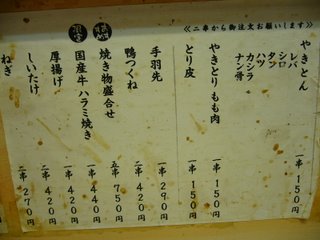 ≪二串から御注文お願いします≫
やきとん
レバ
シロ
タン
ハツ
カシラ
ナンコツ
一串 150円
やきとり もも肉
一串 150円
とり皮
一串 150円
手羽先
一串 290円
鴨つくね
二串 420円
焼き物盛合せ
五串 750円
国産牛ハラミ焼き
一串 440円
厚揚げ
一串 420円
しいたけ
二串 270円
ねぎ